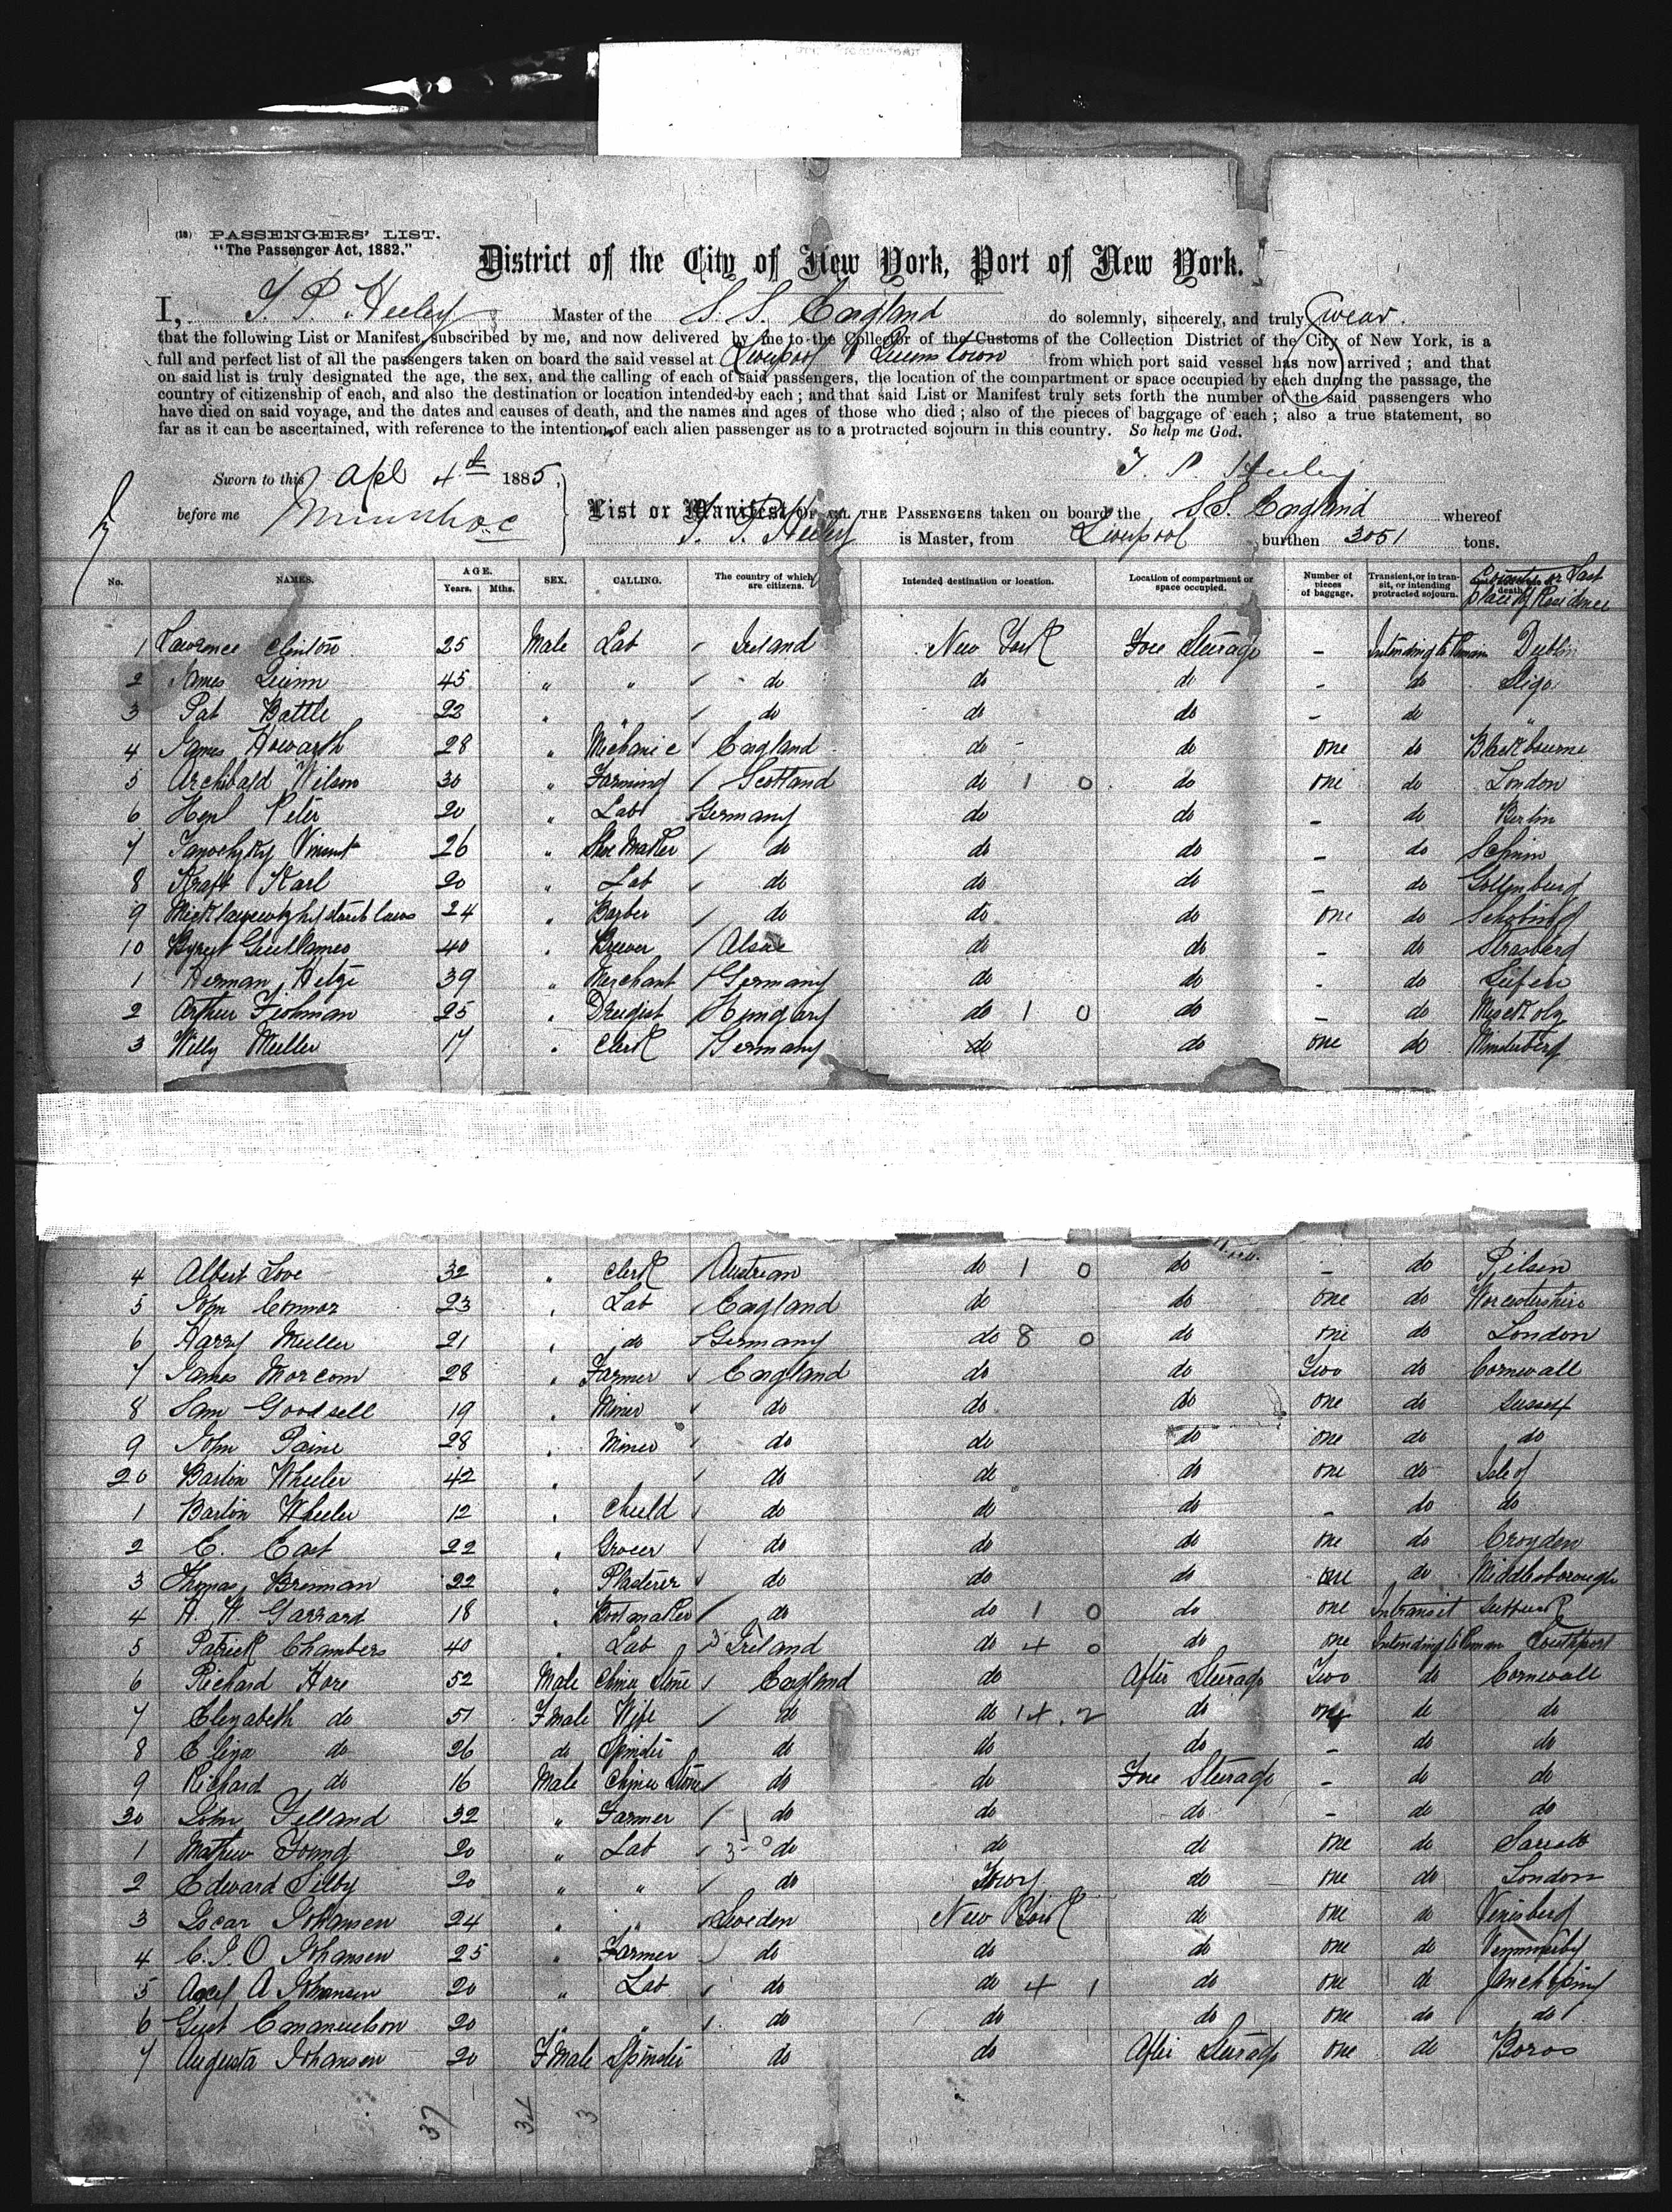 (18) PASSENGERS' LIST.
"The Passenger Act, 1882."
District of the City of New York, Port of New York.
I, Heeley Master of the S. S. England do solemnly, sincerely, and truly Swear.
that the following List or Manifest, subscribed by me, and now delivered by me to the Collector of the Customs of the Collection District of the City of New York, is a
full and perfect list of all the passengers taken on board the said vessel at Liverpool & Queenstown from which port said vessel has now arrived; and that
on said list is truly designated the age, the sex, and the calling of each of said passengers, the location of the compartment or space occupied by each during the passage, the
country of citizenship of each, and also the destination or location intended by each; and that said List or Manifest truly sets forth the number of the said passengers who
have died on said voyage, and the dates and causes of death, and the names and ages of those who died; also of the pieces of baggage of each; also a true statement, so
far as it can be ascertained, with reference to the intention of each alien passenger as to a protracted sojourn in this country. So help me God.
Heeley
Sworn to this Apl 4th 1885,
before me
List or Manifest OF ALL THE PASSENGERS taken on board the S.S. England whereof
Heeley is Master, from Liverpool burthen 3051 tons.
No. NAMES. AGE. Years. Mths. SEX. CALLING. The country of which they are citizens. Intended destination or location. Location of compartment or space occupied. Number of pieces of baggage. Transient, or in transit, or intending protracted sojourn. Country or Last place of Residence
1 Lawrence Clinton 25 Male Lab Ireland New York Fore Steerage – Intending to Reman Dublin
2 James Quinn 45 " " do do do – do Sligo
3 Pat Battle 22 " " do do do – do "
4 James Howarth 28 " Mechanic England do do one do Blackbourne
5 Archibald Wilson 30 " Farming Scotland do 1 0 do one do London
6 Peter 20 " Lab Germany do do – do Berlin
7 26 " Shoe Maker do do do – do
8 Kraft Karl 20 " Lab do do do – do
9 24 " Barber do do do one do
10 40 " Brewer do do – do
1 Herman 39 " Merchant Germany do do – do
2 Arthur 25 " Drugist Hungary do 1 0 do – do
3 Willy Muller 17 " Clerk Germany do do one do
4 Albert Love 32 " Clerk Austrian do 1 0 do – do Pilsen
5 John Connor 23 " Lab England do do one do Worcestershire
6 Harry Muller 21 " do Germany do 8 0 do one do London
7 James Morcom 28 " Farmer England do do Two do Cornwall
8 Sam Goodsell 19 " Miner do do do one do Sussex
9 John Paine 28 " Miner do do do one do do
20 Barton Wheeler 42 " do do do one do Isle of
1 Barton Wheeler 12 " Cheeld do do do – do do
2 C. East 22 " Grocer do do do one do Croyden
3 Thomas Brennan 22 " Plasterer do do do one do Middlesborough
4 Garrard 18 " Bootmaker do do 1 0 do one Intransit
5 Patrick Chambers 40 " Lab Ireland do 4 0 do one Intending to Reman Southport
6 Richard Hore 52 Male China Stone England do After Steerage Two do Cornwall
7 Elizabeth do 51 Fmale Wife do do 14 . 2 do one do do
8 Eliza do 26 do Spinster do do do – do do
9 Richard do 16 Male China Stone do do Fore Steerage – do do
30 John Yelland 32 " Farmer do do do – do do
1 Mathew Young 20 " Lab do do do one do
2 Edward Silby 20 " " do do one do London
3 Oscar Johansen 24 " " Sweden New York do one do
4 C. J. O. Johansen 25 " Farmer do do do one do
5 Axel A Johansen 20 " Lab do do 4 1 do one do
6 Gust Emanuelson 20 " " do do do one do do
7 Augusta Johansen 20 Fmale Spinster do do After Steerage one do Boros
37 34 3